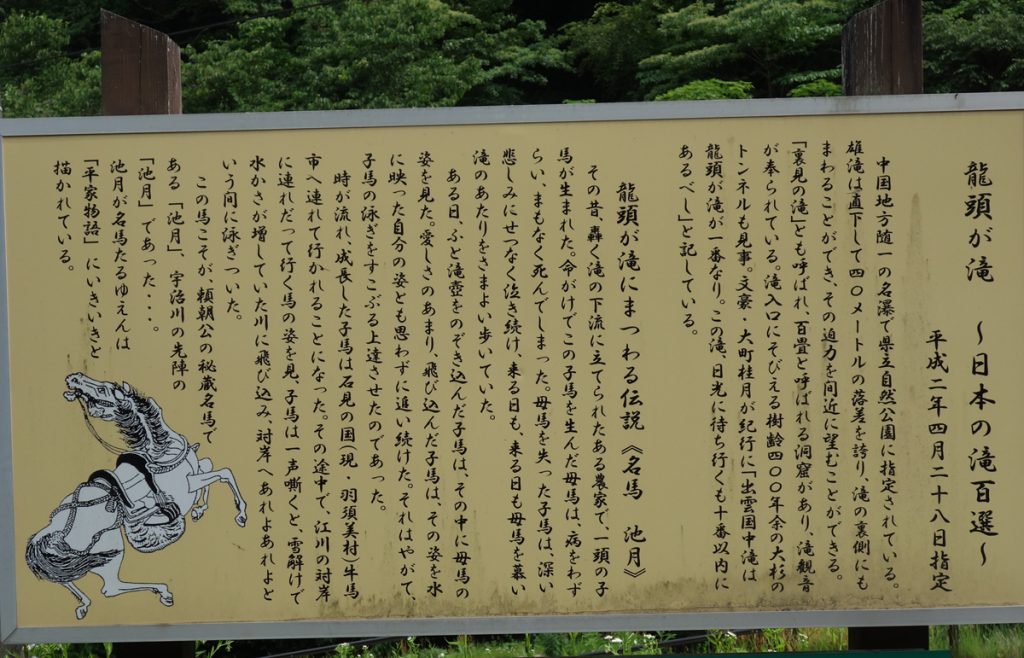 龍頭が滝　～日本の滝百選～
平成二年四月二十八日指定
中国地方随一の名瀑で県立自然公園に指定されている。
雄滝は直下して四〇メートルの落差を誇り、滝の裏側にも
まわることができ、その迫力を間近に望むことができる。
「裏見の滝」とも呼ばれ、百畳と呼ばれる洞窟があり、滝観音
が奉られている。滝入口にそびえる樹齢四〇〇年余の大杉の
トンネルも見事。文豪・大町桂月が紀行に「出雲国中滝は
龍頭が滝が一番なり。この滝、日光に待ち行くも十番以内に
あるべし」と記している。
龍頭が滝にまつわる伝説《名馬　池月》
その昔、轟く滝の下流に立てられたある農家で、一頭の子
馬が生まれた。命がけでこの子馬を生んだ母馬は、病をわず
らい、まもなく死んでしまった。母馬を失った子馬は、深い
悲しみにせつなく泣き続け、来る日も、来る日も母馬を慕い
滝のあたりをさまよい歩いていた。
ある日、ふと滝壺をのぞき込んだ子馬は、その中に母馬の
姿を見た。愛しさのあまり、飛び込んだ子馬は、その姿を水
に映った自分の姿とも思わずに追い続けた。それはやがて、
子馬の泳ぎをすこぶる上達させたのであった。
時が流れ、成長した子馬は石見の国現・羽須美村一牛馬
市へ連れて行かれることになった。その途中で、江川の対岸
に連れだって行く馬の姿を見、子馬は一声嘶くと、雪解けで
水かさが増していた川に飛び込み、対岸へあれよあれよと
いう間に泳ぎついた。
この馬こそが、頼朝公の秘蔵名馬で
ある「池月」、宇治川の先陣の
「池月」であった・・・。
池月が名馬たるゆえんは
「平家物語」にいきいきと
描かれている。